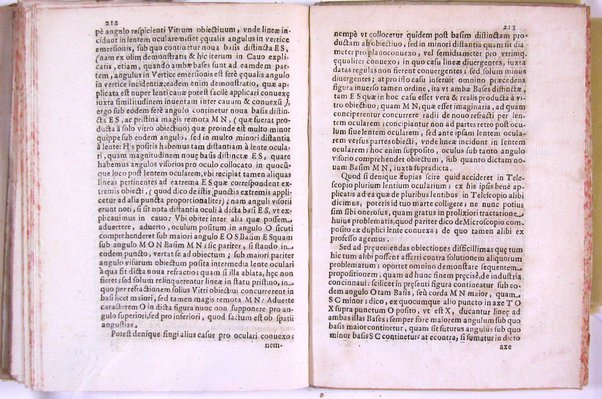 212
pè angulo respicienti Vitrum obiectiuum, vnde lineæ inci-
dunt in lentem ocularem isthęc equalis angulus in vertice
emersionis, sub quo continetur noua basis distincta ES,
(nam ex olim demonstratis, & hic iterum in Cauo expli-
catis, etiam, quando ambæ bases sunt ad eamdem par-
tem, angulus in Vertice emersionis est sẽpè equalis angulo
in vertice incidẽtiæ; eadem enim demonstratio, quæ ap-
plicata est nuper lenti cauæ potest facilè applicari conuexę
iuxta similitudinem inuentam inter cauum & conuexũ),
ergo sub eodem ferè angulo continetur noua basis distin-
cta ES, ac pristina magis remota MN, (quæ fuerat pro-
ducta à solo vitro obiectiuo) quæ proinde est multo minor
quippe sub eodem angulo, sed in multo minori distantia
à lente: His positis habemus tam distantiam à lente ocula-
ri, quam magnitudinem nouæ basis distinctæ ES, quare
habemus angulos visorios pro oculo collocato in quocũ-
que loco post lentem ocularem, vbi recipiat tamen aliquas
lineas pertinentes ad extrema ES quæ correspondent ex-
tremis obiecti, (quod dico de istis punctis extremis appli-
catur ad alia puncta proportionaliter;) nam anguli visorij
erunt noti, si sit nota distantia oculi à dicta basi ES, vt ex-
plicauimus in cauo. Vbi obiter inter alia quæ possem
aduertere, aduerto, oculum positum in angulo O sicuti
comprehenderet sub maiori angulo EOS Basim ES quam
sub angulo MON Basim MN, sic pariter, si stando in
eodem puncto, vertat se ad obiectum, sub maiori pariter
angulo visurum obiectum posita intermedia lente oculari
à qua sit dicta noua refractio, quam si illa ablata, hęc non
esset, sed solum relinquerentur lineæ in statu pristino, in
quo per refractionem solius Vitri obiectiui concurrerent in
basi licet maiori, sed tamen magis remota MN: Aduerte
caracterem O in dicta figura nunc non supponere pro an-
gulo superiori, sed pro inferiori, quod factum est ob spatij
angustias.
Potest denique fingi alius casus pro oculari conuexo;
nem-
213
nempè vt collocetur quidem post basim distinctam pro-
ductam ab obiectiuo, sed in minori distantia quam sit dia-
meter pro planoconuexo, vel semidiameter pro vtrinque
equaliter conuexo; in quo casu lineæ diuergentes, iuxta
datas regulas non fierent conuergentes; sed solum minus
diuergentes; at pro isto casu inseruit omnino præcedens
figura inuerso tamen ordine, ita vt ambę Bases distinctæ,
tam ES quæ in hoc casu esset vera & realis producta à vi-
tro obiectiuo; quam MN, quæ esset imaginaria, ad quam
conciperentur concurrere radij de nouo refracti per len-
tem ocularem; concipiantur non ad partes retro post ocu-
lum siue lentem ocularem, sed ante ipsam lentem ocularem
versus partes obiecti, vnde lineæ incidunt in lentem ocula-
rem conuexam pro subiecto, oculus sub tanto angulo
visorio comprehendet obiectum, sub quanto dictam no-
uam Basim MN, iuxta supradicta.
Quod si denique cupias scire quid accideret in Teles-
copio plurium lentium ocularium; ex his ipsis benè appli-
catis ad ea quæ de pluribus lentibus in Telescopio alibi
dicimus, poteris id tuo marte colligere; ne nunc potius
sim tibi onerosus, quam gratus in prolixiori tractation.
huius problematis, quod pariter dico de Microscopio com-
posito ex duplici lente conuexa; de quo tamen alibi ex
professo agemus.
Sed ad preueniendas obiectiones difficillimas quę tum
hic tum alibi possent afferri contra solutionem aliquorum
problematum; oportet omnino demonstrare sequentem
propositionem, quam ad hunc finem pręcisè, de industria
concinnaui; scilicet in presenti figura continetur sub eo-
dem angulo O tam Basis, seù corda MN maior, quam
SC minor; dico, ex quocumque alio puncto in axe TO
X supra punctum O posito, vt est X, ducantur lineæ ad
ambas illas Bases; semper fore maiorem angulum sub quo
basis maior continetur, quam sit futurus angulus sub quo
minor basis SC continetur; at è contra, si sumatur in dicto
axe